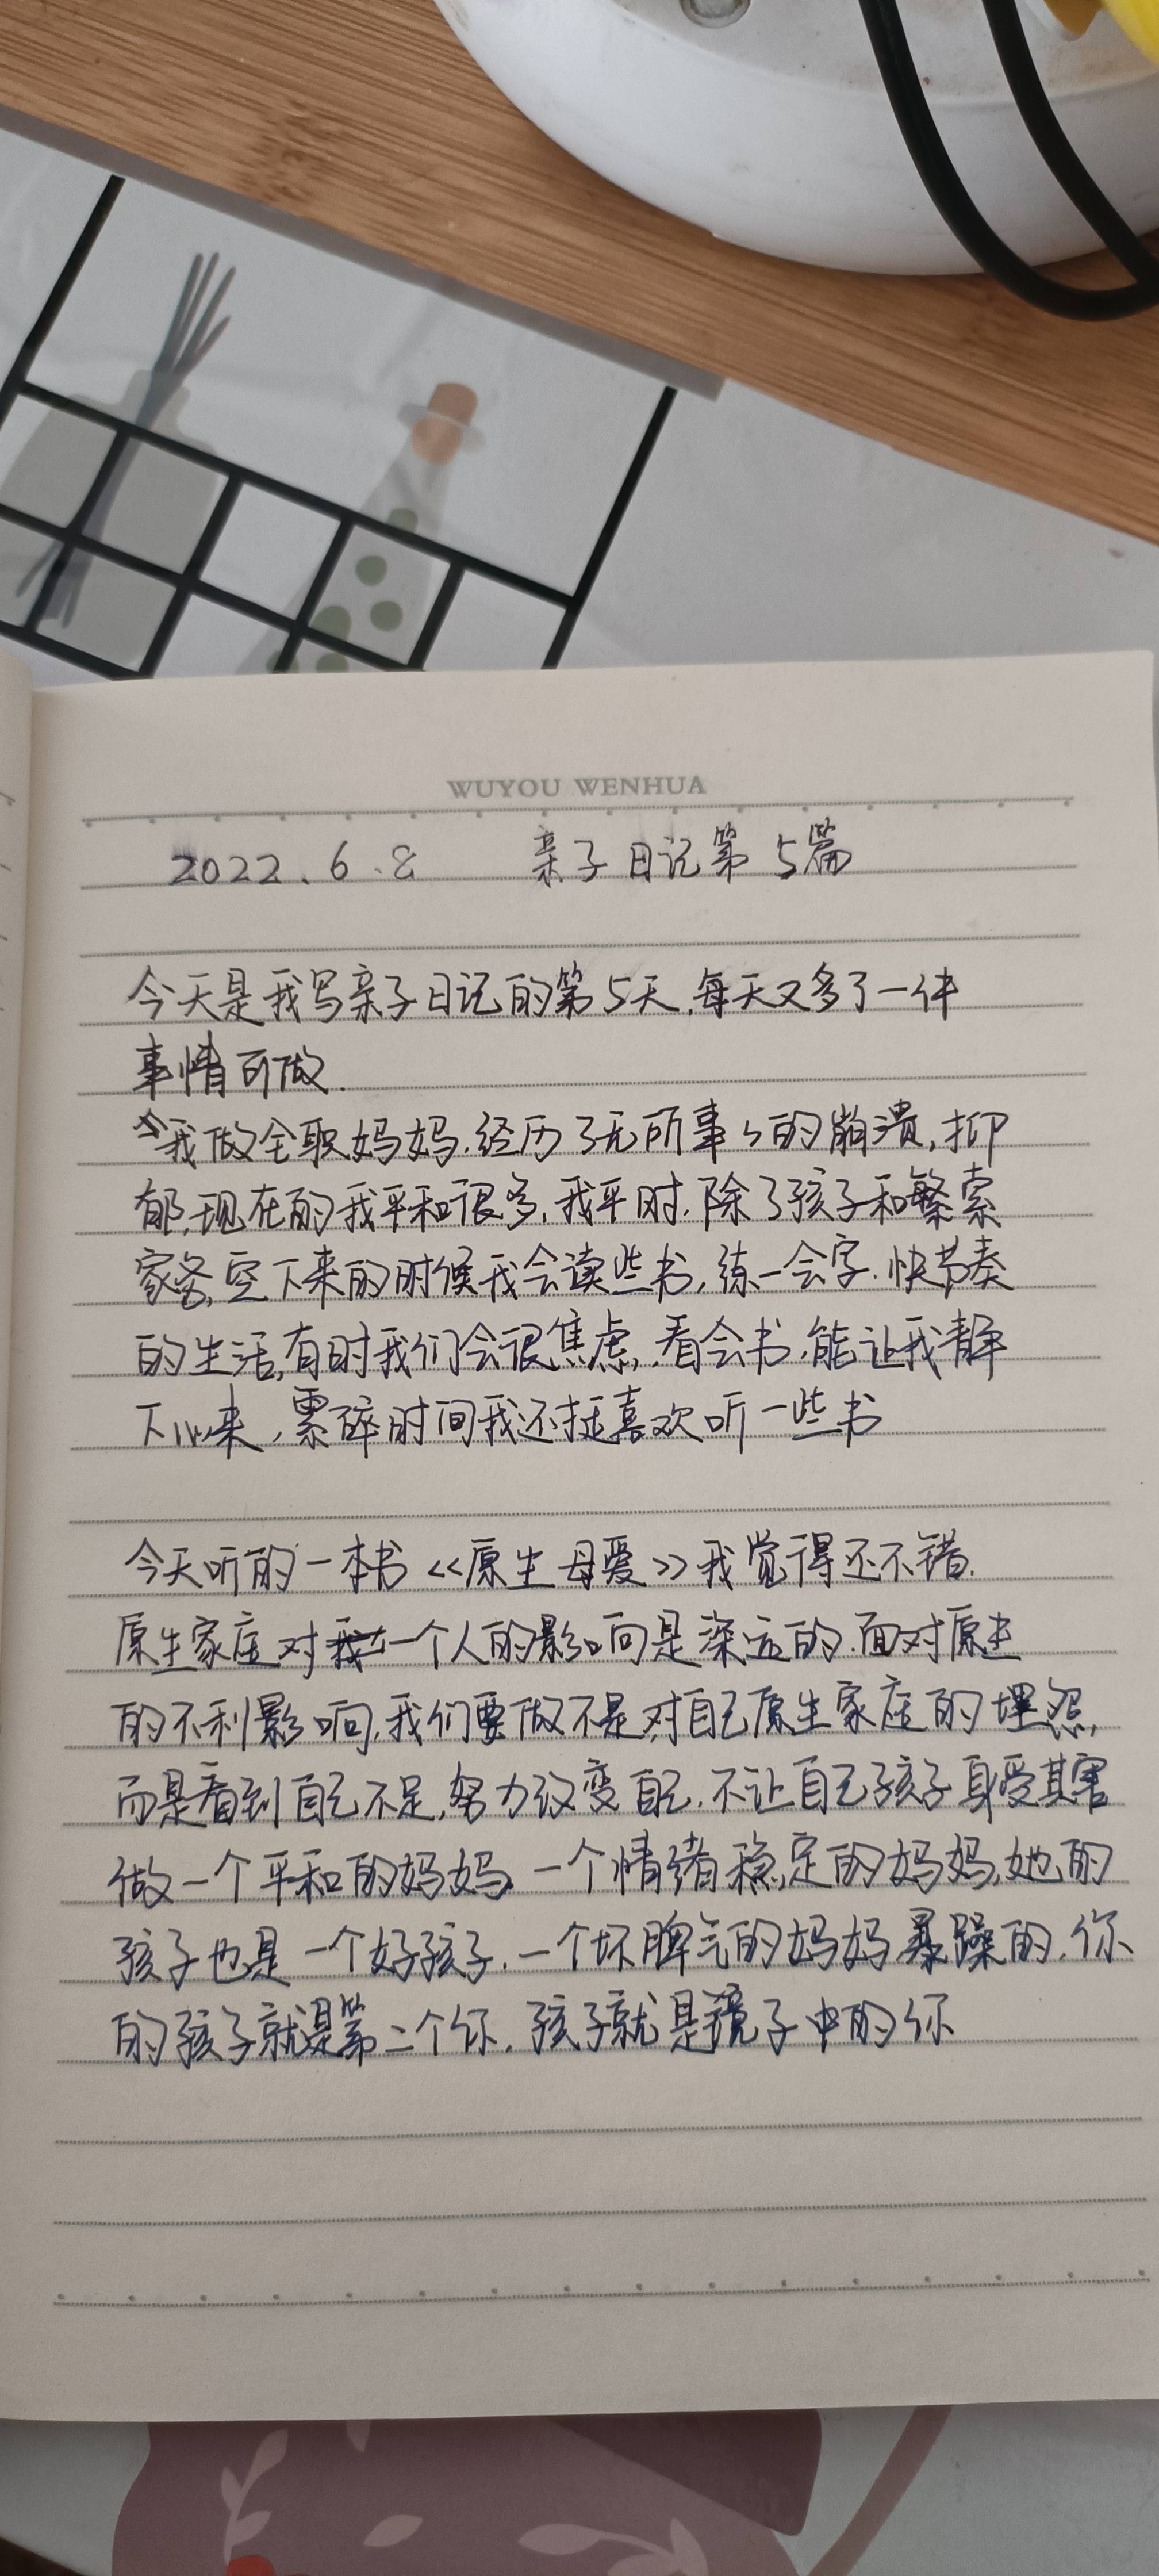 WUYOU WENHUA
2022.6.8 亲子日记第5篇
今天是我写亲子日记的第5天,每天又多了一件
事情可做.
我做全职妈妈.经历了无所事々的崩溃,抑
郁,现在的我平和很多,我平时.除了孩子和繁索
家务,空下来的时候我会读些书,练一会字.快节奏
的生活,有时我们会很焦虑,.看会书,能让我静
下心来,累碎时间我还挺喜欢听一些书
今天听的一本书《原生母爱》我觉得还不错.
原生家庭对一个人的影响是深远的.面对原生
的不利影响,我们要做不是对自己原生家庭的埋怨,
而是看到自己不足,努力改变自己.不让自己孩子身受其害
做一个平和的妈妈,一个情绪稳定的妈妈,她的
孩子也是一个好孩子.一个坏脾气的妈妈暴躁的.你
的孩子就是第二个你.孩子就是镜子中的你